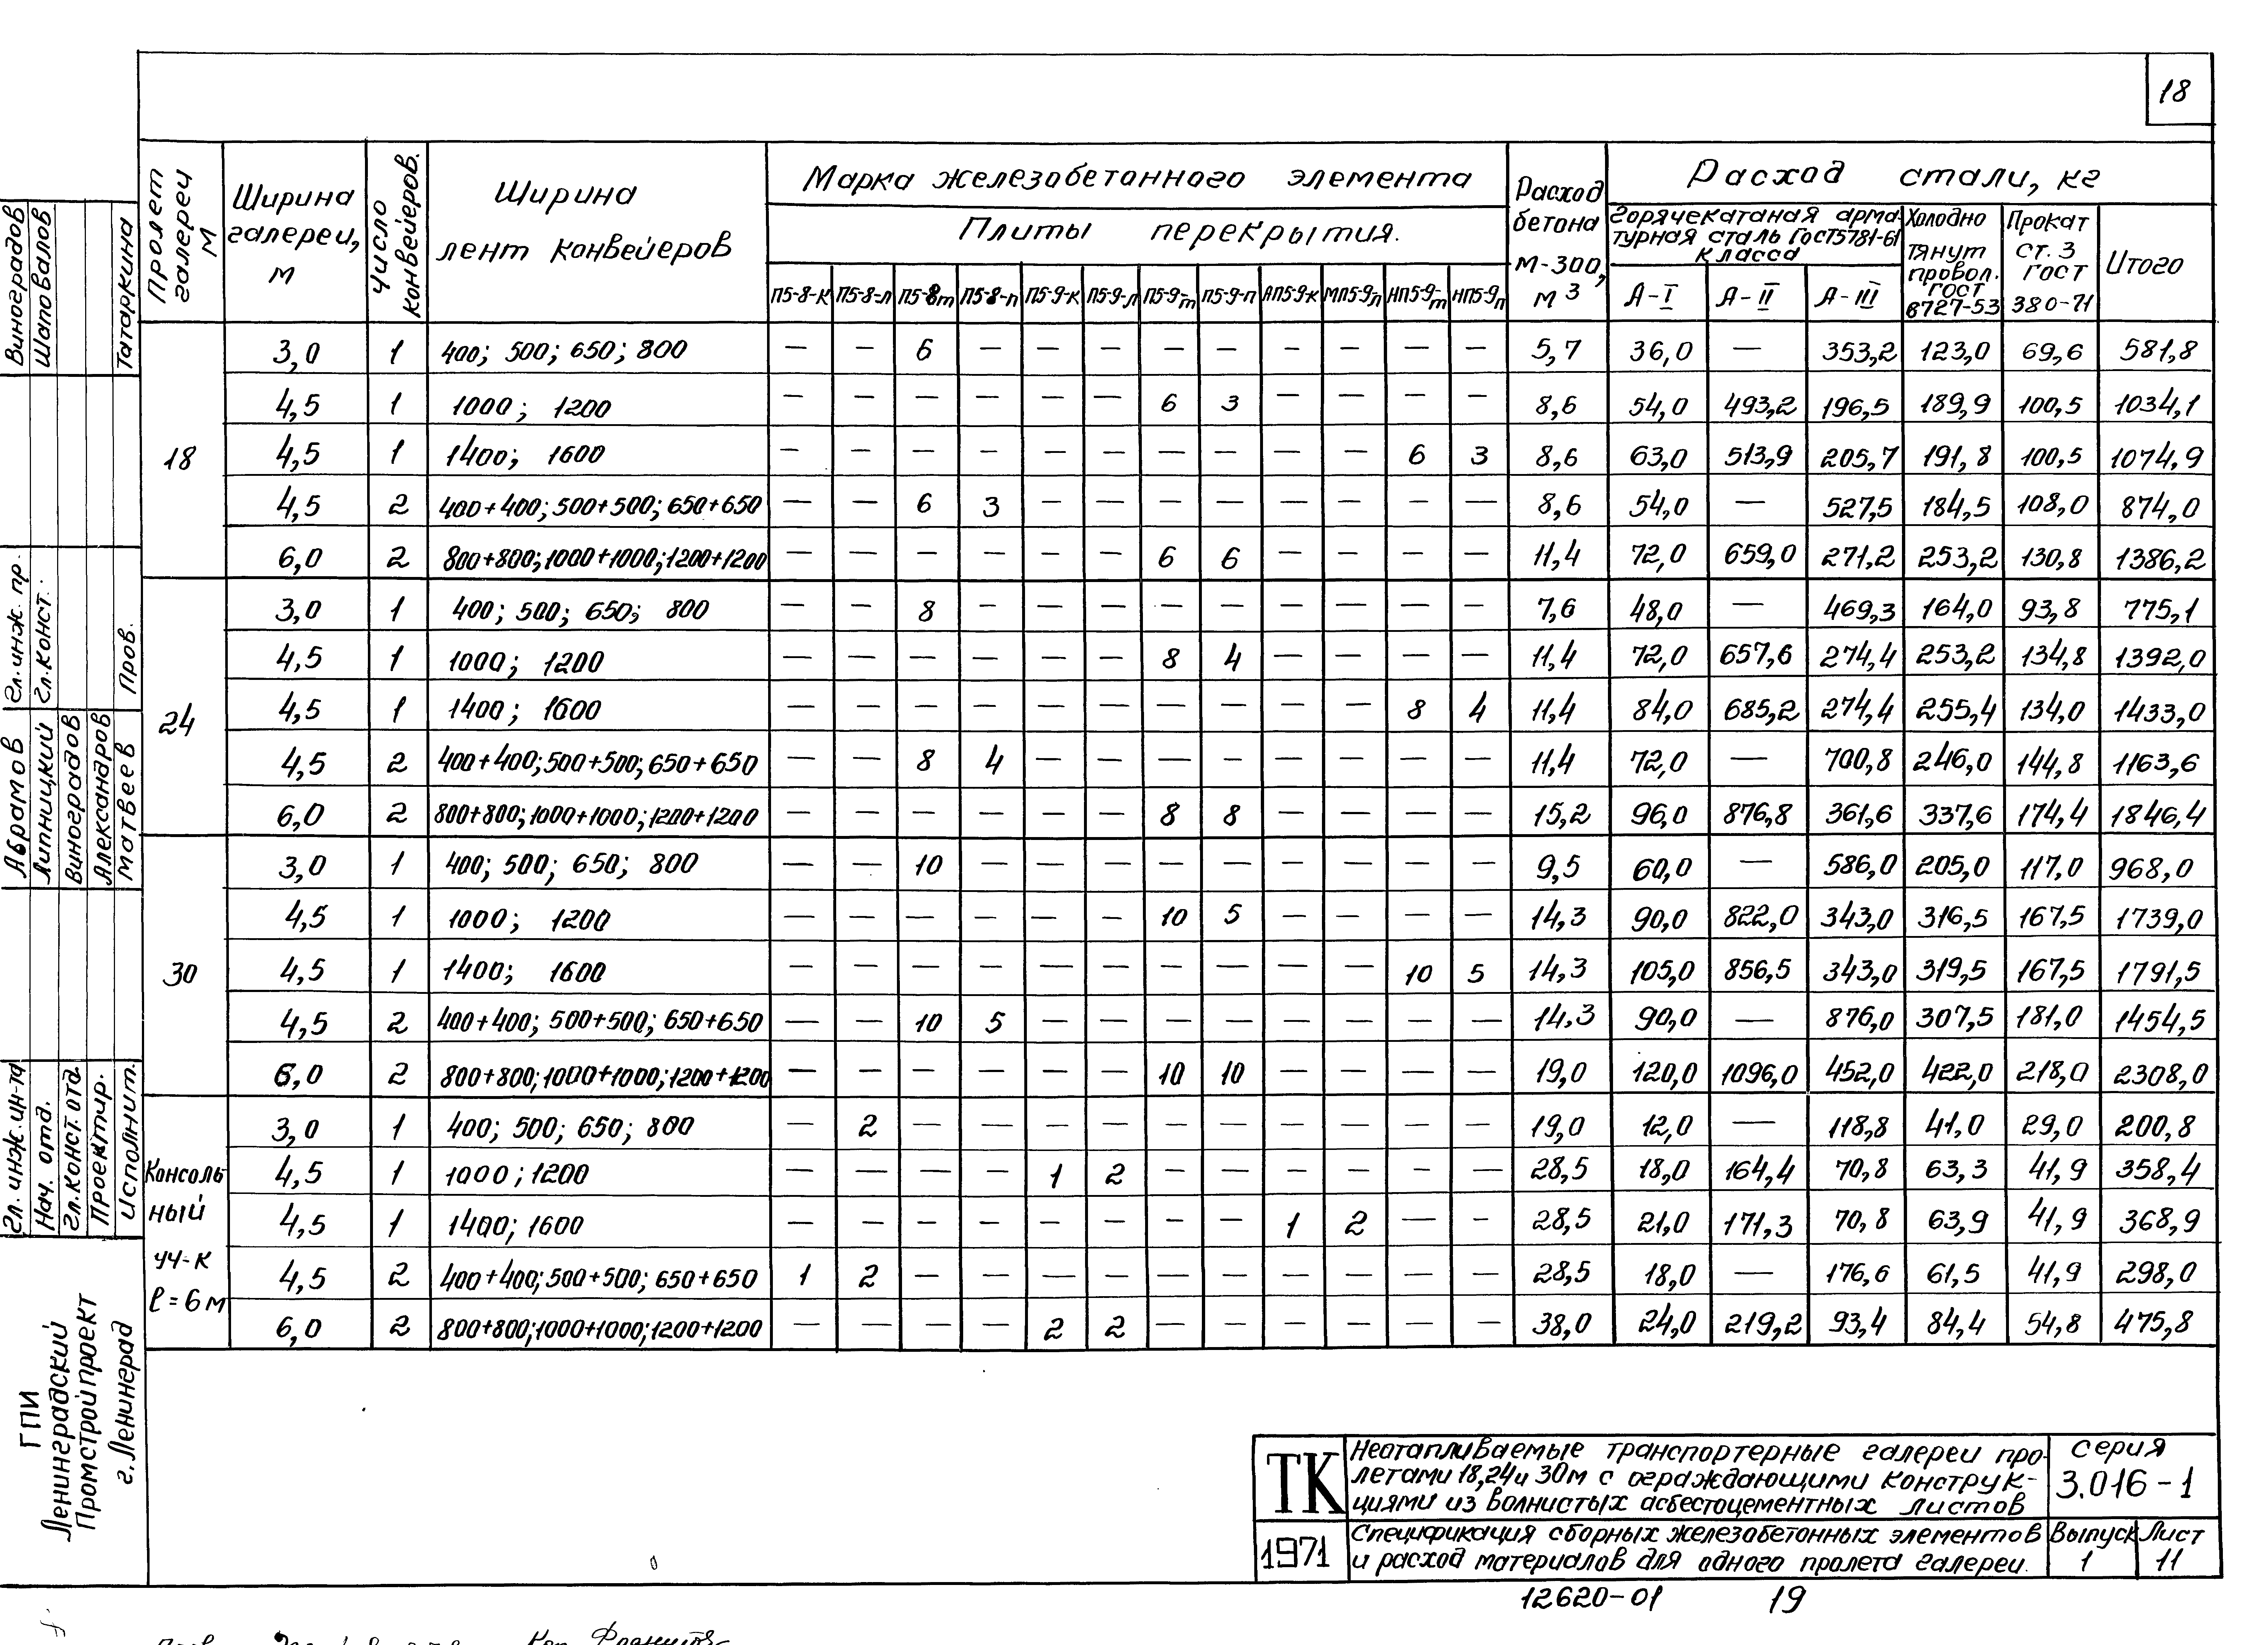 18
Пролет галереи М
Ширина галереи, м
Число конвейеров.
Ширина лент конвейеров
Марка железобетонного элемента
Плиты перекрытия.
П5-8-к П5-8-л П5-8т П5-8-п П5-9-к П5-9-л П5-9-т П5-9-п НП5-9-т НП5-9п
Расход бетона М-300, м3
Расход стали, кг
Горячекатаная арма-
турная сталь ГОСТ5781-61
класса
А-I А-II А-III
Холодно тянут провол. ГОСТ 6727-53
Прокат ст. 3 ГОСТ 380-71
Итого
18
3,0 1 400; 500; 650; 800 — — 6 — — — — — — — — — 5,7 36,0 — 353,2 123,0 69,6 581,8
4,5 1 1000; 1200 — — — — — — 6 3 — — — — 8,6 54,0 493,2 196,5 189,9 100,5 1034,1
4,5 1 1400; 1600 — — — — — — — — — — 6 3 8,6 63,0 513,9 205,7 191,8 100,5 1074,9
4,5 2 400+400; 500+500; 650+650 — — 6 3 — — — — — — — — 8,6 54,0 — 527,5 184,5 108,0 874,0
6,0 2 800+800; 1000+1000; 1200+1200 — — — — — — 6 6 — — — — 11,4 72,0 659,0 271,2 253,2 130,8 1386,2
24
3,0 1 400; 500; 650; 800 — — 8 — — — — — — — — — 7,6 48,0 — 469,3 164,0 93,8 775,1
4,5 1 1000; 1200 — — — — — — 8 4 — — — — 11,4 72,0 657,6 274,4 253,2 134,8 1392,0
4,5 1 1400; 1600 — — — — — — — — — — 8 4 11,4 84,0 685,2 274,4 255,4 134,0 1433,0
4,5 2 400+400; 500+500; 650+650 — — 8 4 — — — — — — — — 11,4 72,0 — 700,8 246,0 144,8 1163,6
6,0 2 800+800; 1000+1000; 1200+1200 — — — — — — 8 8 — — — — 15,2 96,0 876,8 361,6 337,6 174,4 1846,4
30
3,0 1 400; 500; 650; 800 — — 10 — — — — — — — — — 9,5 60,0 — 586,0 205,0 117,0 968,0
4,5 1 1000; 1200 — — — — — — 10 5 — — — — 14,3 90,0 822,0 343,0 316,5 167,5 1739,0
4,5 1 1400; 1600 — — — — — — — — — — 10 5 14,3 105,0 856,5 343,0 319,5 167,5 1791,5
4,5 2 400+400; 500+500; 650+650 — — 10 5 — — — — — — — — 14,3 90,0 — 876,0 307,5 181,0 1454,5
6,0 2 800+800; 1000+1000; 1200+1200 — — — — — — 10 10 — — — — 19,0 120,0 1096,0 452,0 422,0 218,0 2308,0
Консоль-
ный
уч-к
ℓ=6м
3,0 1 400; 500; 650; 800 — 2 — — — — — — — — — — 19,0 12,0 — 118,8 41,0 29,0 200,8
4,5 1 1000; 1200 — — — — 1 2 — — — — — — 28,5 18,0 164,4 70,8 63,3 41,9 358,4
4,5 1 1400; 1600 — — — — — — — — 1 2 — — 28,5 21,0 171,3 70,8 63,9 41,9 368,9
4,5 2 400+400; 500+500; 650+650 1 2 — — — — — — — — — — 28,5 18,0 — 176,6 61,5 41,9 298,0
6,0 2 800+800; 1000+1000; 1200+1200 — — — — 2 2 — — — — — — 38,0 24,0 219,2 93,4 84,4 54,8 475,8
Виноградов
Шаповалов
Татаркина
Гл. инж. пр.
Гл. конст.
Пров.
Абрамов
Липницкий
Виноградов
Александров
Матвеев
Гл. инж. ин-та
Нач. отд.
Гл. конст. отд.
Проектир.
Исполнит.
ГПИ
Ленинградский
Промстройпроект
г. Ленинград
ТК
1971
Неотапливаемые транспортерные галереи про-
летами 18,24 и 30м с ограждающими конструк-
циями из волнистых асбестоцементных листов
Серия
3.016-1
Спецификация сборных железобетонных элементов
и расход материалов для одного пролета галереи.
Выпуск
1
Лист
11
12620-01 19